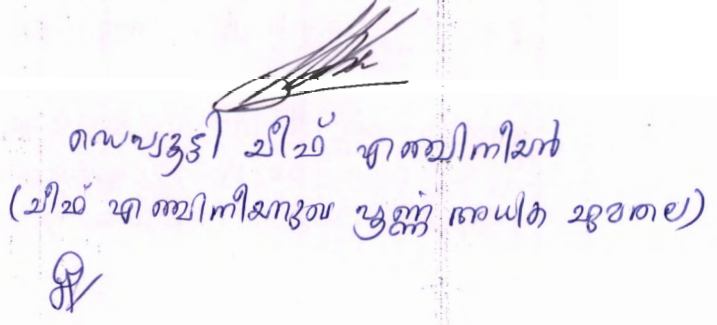 ഡെപ്യൂട്ടി ചീഫ് എഞ്ചിനീയർ
(ചീഫ് എഞ്ചിനീയറുടെ പൂർണ്ണ അധിക ചുമതല)